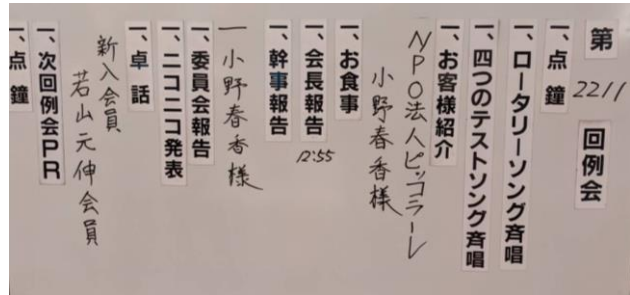 第2211回例会
一、点鐘
一、ロータリーソング斉唱
一、四つのテストソング斉唱
一、お客様紹介
NPO法人ピッコラーレ
小野春香様
一、お食事
一、会長報告 12:55
一、幹事報告
一 小野春香様
一、委員会報告
一、ニコニコ発表
一、卓話
新入会員
若山元伸会員
一、次回例会PR
一、点鐘